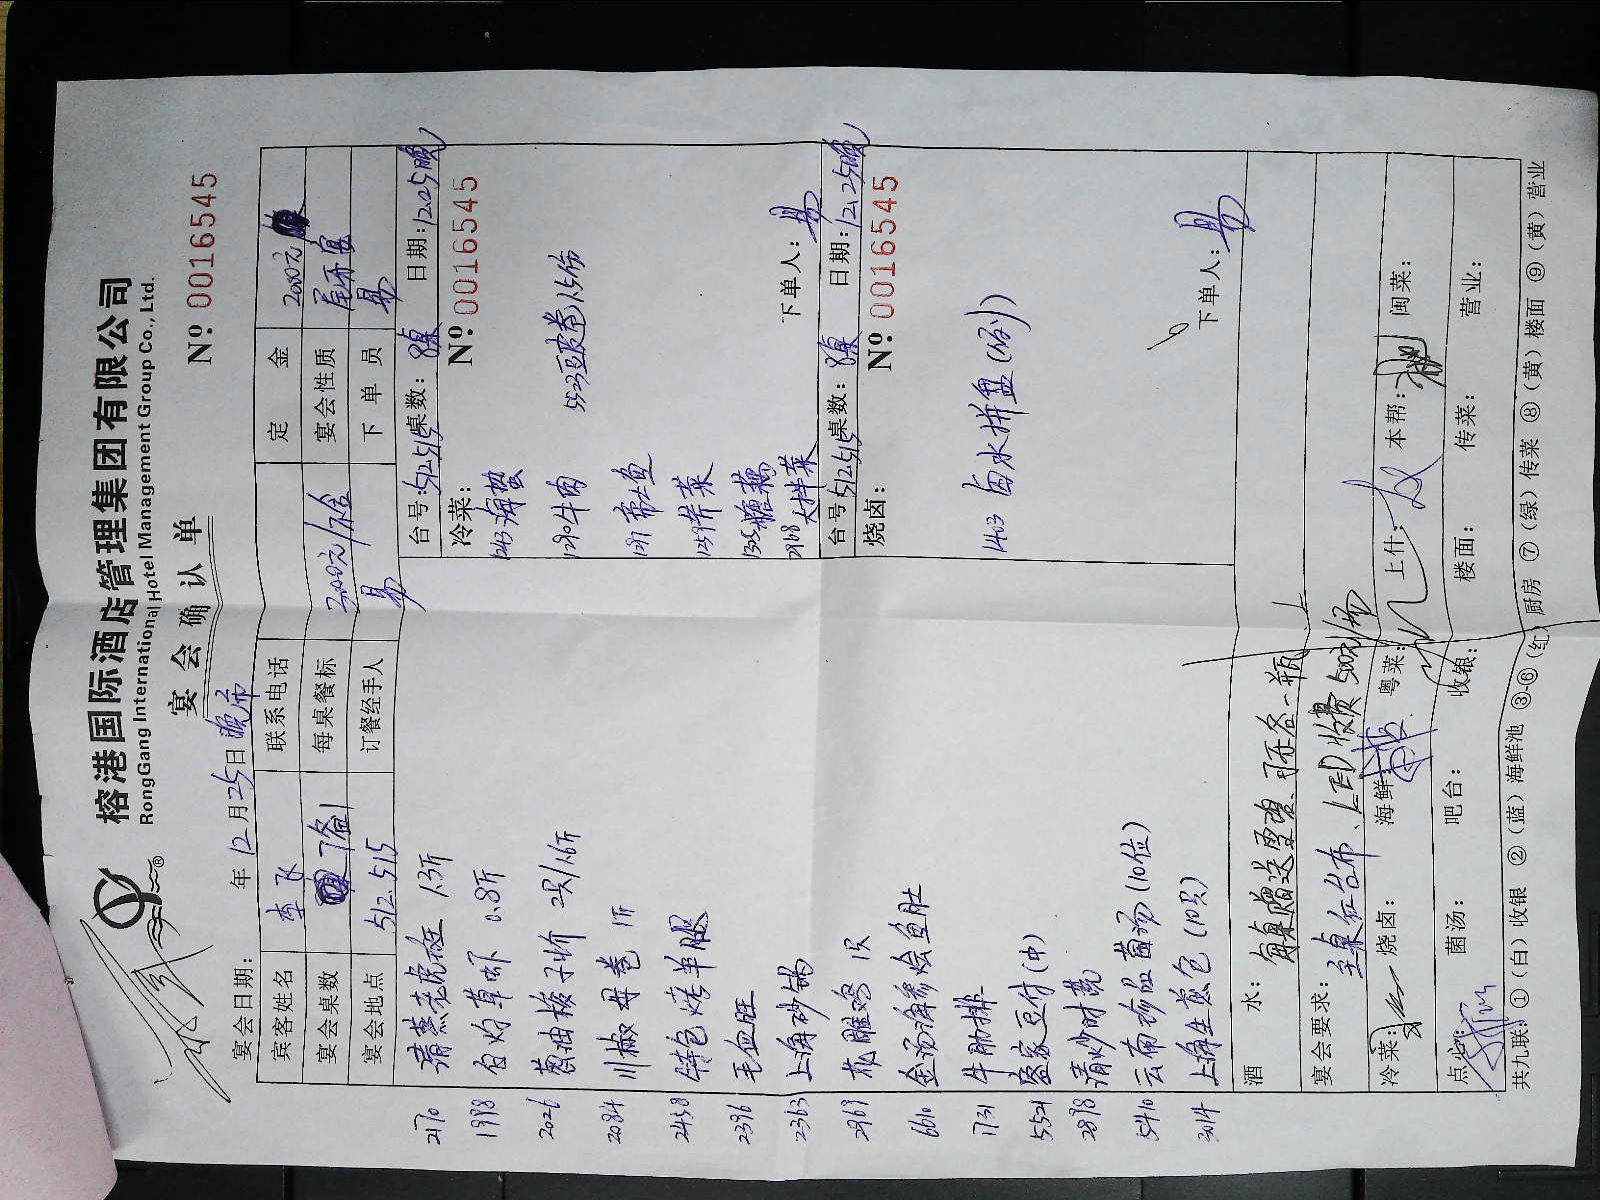 榕港国际酒店管理集团有限公司
RongGang International Hotel Management Group Co., Ltd.
®
宴会确认单
Nº: 0016545
宴会日期: 年 12月25日 晚市
宾客姓名 李飞 联系电话 定金 2000元
宴会桌数 每桌餐标 2000元/不含 宴会性质
宴会地点 512.515 订餐经手人 易 下单员 易
台号: 512.515 桌数: 8桌 日期: 12.25晚
冷菜: Nº 0016545
1243 海蜇
1290 牛肉 5523 豆皮卷 1.5份
1259 荠菜
1325 糖藕
2968 大拌菜
下单人: 易
台号 512.515 桌数: 8桌 日期: 12.25晚
烧卤: Nº: 0016545
1403 卤水拼盘 (例)
下单人: 易
2170 清蒸老虎斑 1.3斤
1998 白灼草虾 0.8斤
2026 葱油梭子蟹 2只/1.6斤
2084 川椒 卷 1斤
2458 特色烤羊腿
2396 毛血旺
2363 上海砂锅
2969 花雕鸡 1只
6610 金汤海参烩鱼肚
1731 牛肋排
5521 客家豆付 (中)
2898 清炒时蔬
5410 云南珍品菌汤 (10位)
3014 上海生煎包 (10只)
酒水: 每桌赠送雪碧、可乐各一瓶
宴会要求: 主桌红台布、LED收费500元/
冷菜: 烧卤: 海鲜: 粤菜: 上什: 本帮: 闽菜:
点心: 菌汤: 吧台: 收银: 楼面: 传菜: 营业:
共九联: ①(白)收银 ②(蓝)海鲜池 ③-⑥(红)厨房 ⑦(绿)传菜 ⑧(黄)楼面 ⑨(黄)营业